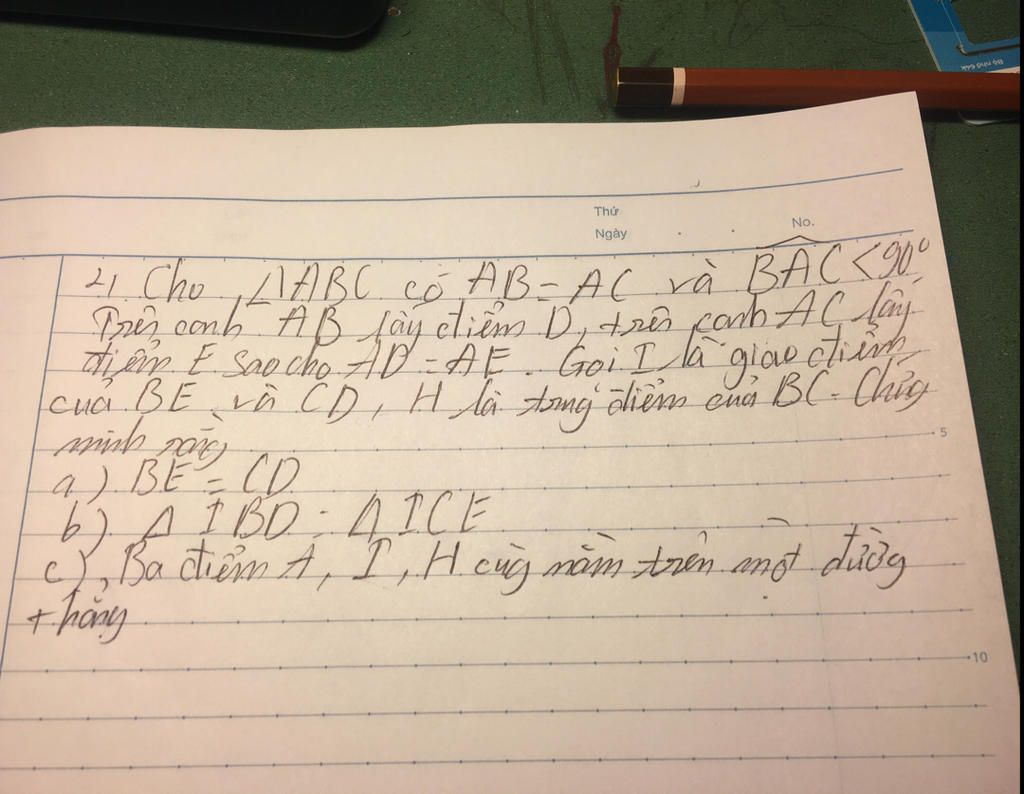 Bộ nhỏ 64k
Thứ
Ngày
No.
4, Cho △ABC có AB = AC và BAC < 90°
Trên canh AB lấy điểm D, trên canh AC lấy
điểm E sao cho AD = AE. Gọi I là giao điểm
cuả BE và CD, H là trung điểm cuả BC. Chứg
minh rằng
a) BE = CD
b) △ IBD = △ ICE
c), Ba điểm A, I, H cùg nằm trên một đườg
thẳng
5
10